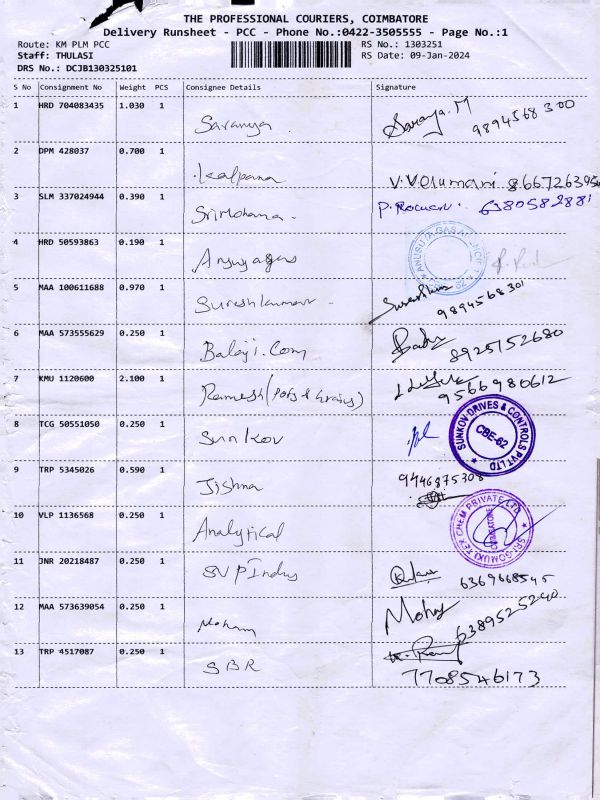 THE PROFESSIONAL COURIERS, COIMBATORE
Delivery Runsheet - PCC - Phone No.:0422-3505555 - Page No.:1
Route: KM PLM PCC
RS No.: 1303251
Staff: THULASI
RS Date: 09-Jan-2024
DRS No.: DCJB130325101
S No Consignment No Weight PCS Consignee Details Signature
1 HRD 704083435 1.030 1
Saranya. Saranya.M 9894568300
2 DPM 428037 0.700 1
Kalpana V.Velumani
3 SLM 337024944 0.390 1
SriMohana. 6380582881
4 HRD 50593863 0.190 1
5 MAA 100611688 0.970 1
Sureshkumar 9894568301
6 MAA 573555629 0.250 1
Balaji.Com 8925152680
7 KMU 1120600 2.100 1
Ramesh (Pots & Grains) 9566980612
8 TCG 50551050 0.250 1
Sunkov
SUNKOV DRIVES & CONTROLS PVT LTD
CBE-62
9 TRP 5345026 0.590 1
Jishna 9446875308
10 VLP 1136568 0.250 1
Analytical
SRI GOMUKI TEX CHEM PRIVATE LTD.
COIMBATORE
11 JNR 20218487 0.250 1
SVP Indus 6369668545
12 MAA 573639054 0.250 1
Mohan Mohan 6389525240
13 TRP 4517087 0.250 1
SBR
7708546173